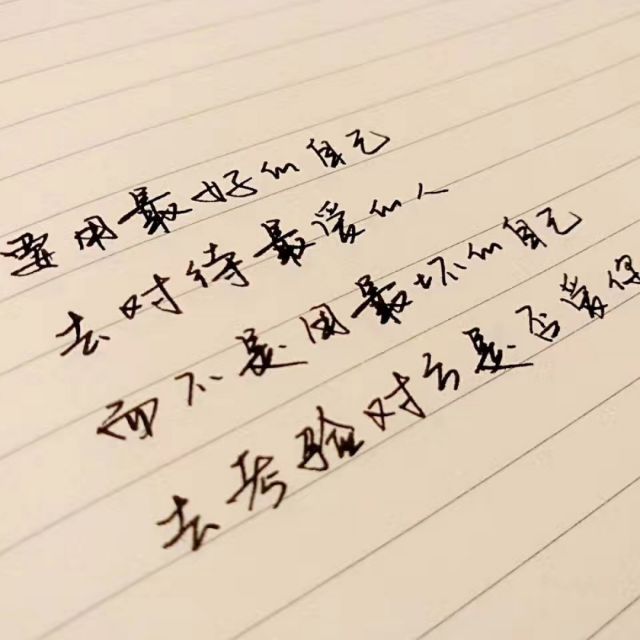 要用最好的自己
去对待最爱的人
而不是用最坏的自己
去考验对方是否爱你